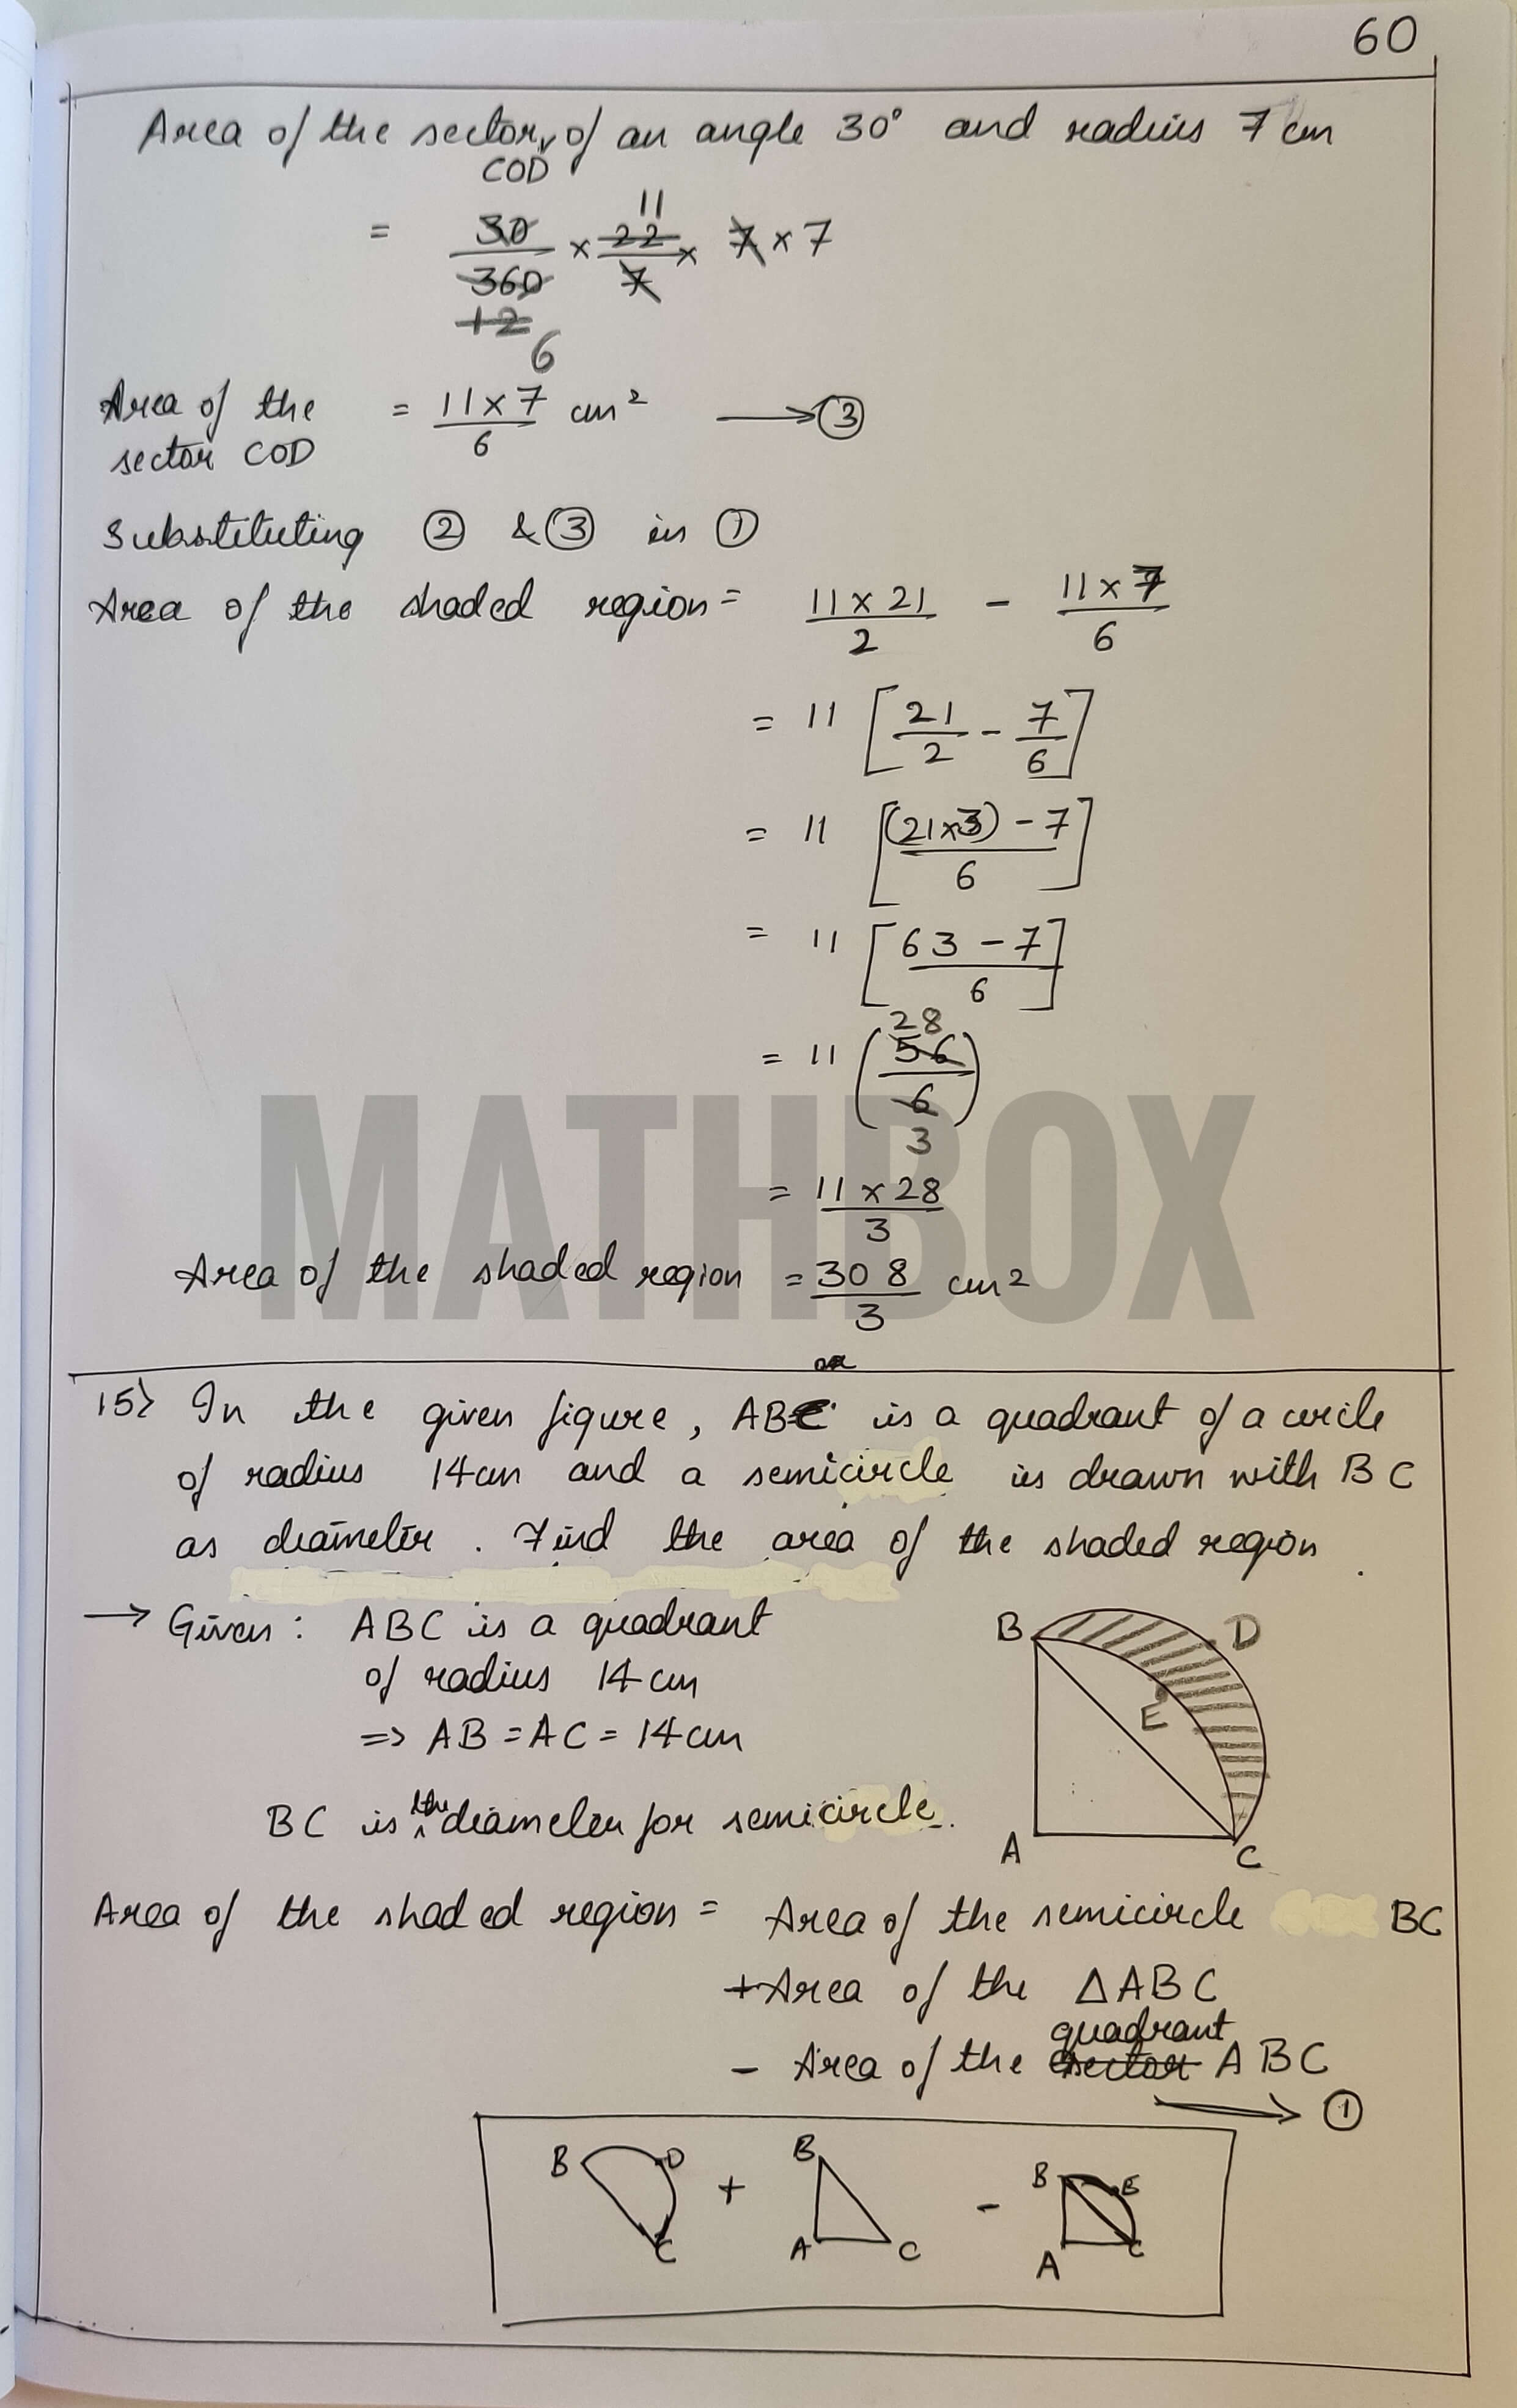 60
Area of the sector of an angle 30° and radius 7 cm
COD
11
= 30/360 × 22/7 × 7 × 7
12
6
Area of the = 11×7/6 cm² → ③
sector COD
Substituting ② & ③ in ①
Area of the shaded region = 11 × 21/2 - 11 × 7/6
= 11 [21/2 - 7/6]
= 11 [(21×3) - 7/6]
= 11 [63 - 7/6]
28
= 11 (56/6)
3
= 11 × 28/3
Area of the shaded region = 308/3 cm²
MATHBOX
15) In the given figure, ABC is a quadrant of a circle
of radius 14cm and a semicircle is drawn with BC
as diameter. Find the area of the shaded region.
→ Given: ABC is a quadrant
of radius 14 cm
=> AB = AC = 14 cm
BC is the diameter for semicircle.
B D
E
A C
Area of the shaded region = Area of the semicircle BC
+ Area of the △ABC
quadrant
- Area of the sector ABC
→ ①
B D + B - B E
C A C A C